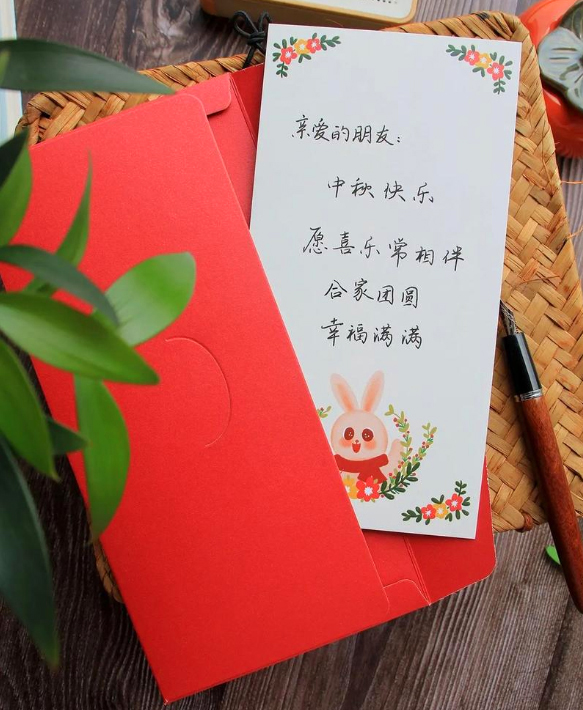 亲爱的朋友:
中秋快乐
愿喜乐常相伴
合家团圆
幸福满满